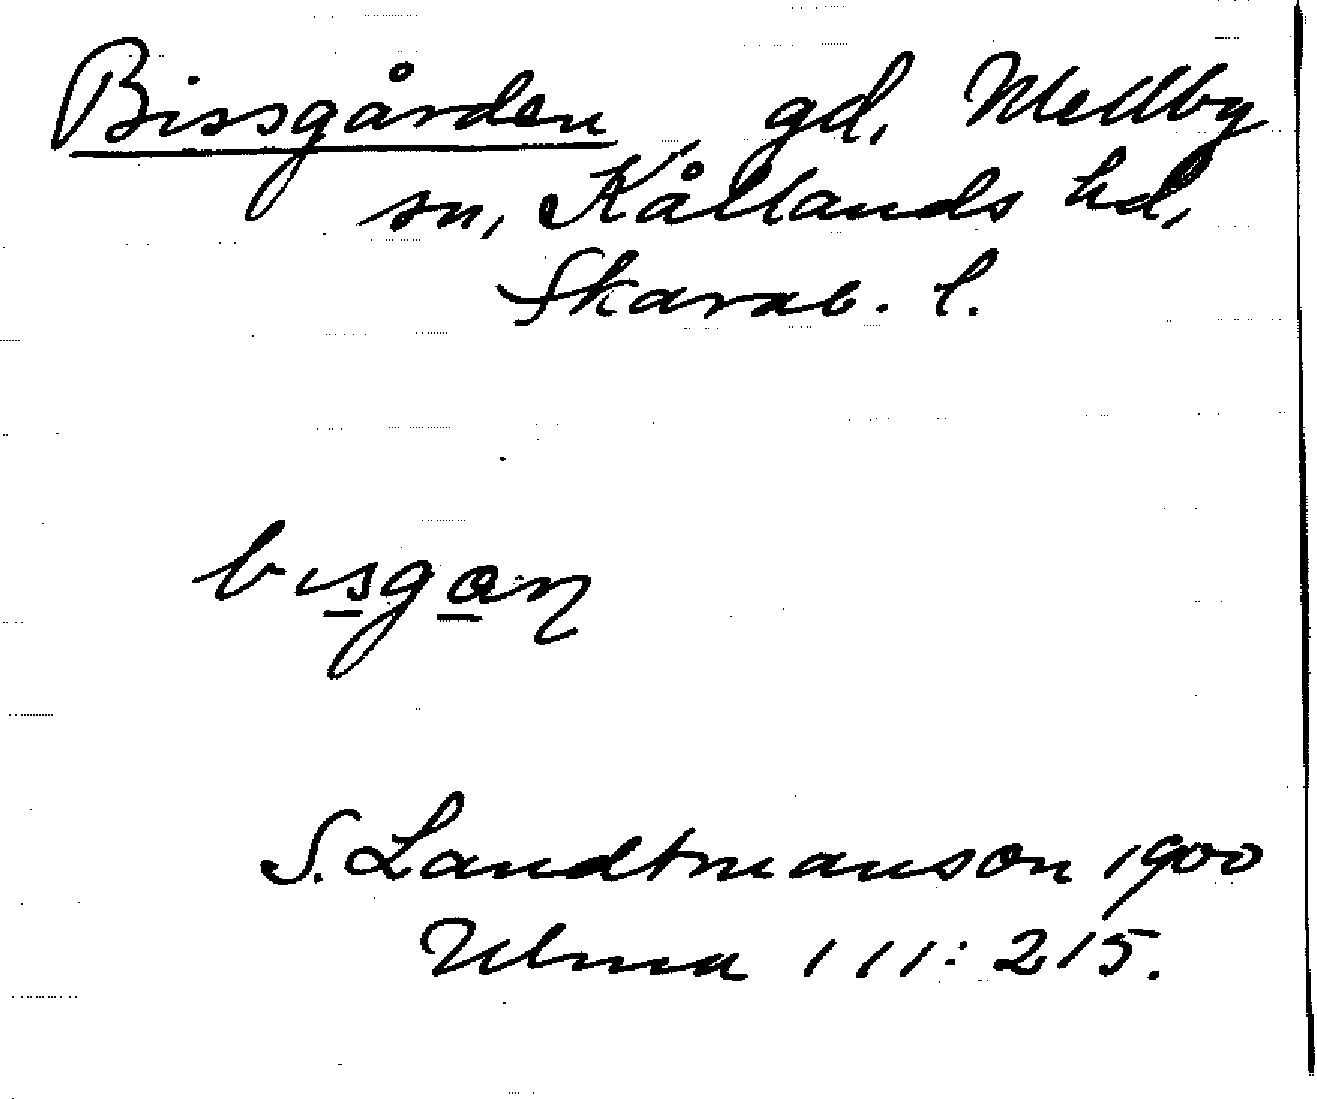 Bissgården gd, Mellby
sn, Kållands hd,
Skarab. l.
S. Landtmanson 1900
Ulma 111:215.